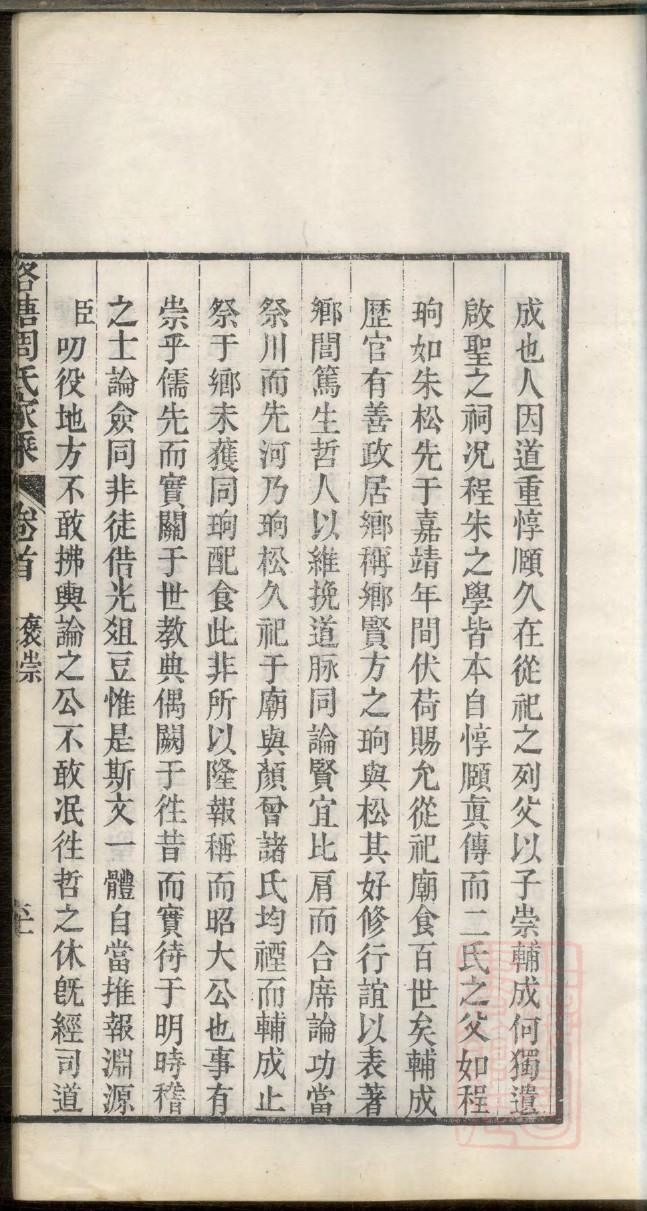 成也人因道重惇頤久在從祀之列父以子崇輔成何獨遺
啟聖之祠况程朱之學皆本自惇頤眞傳而二氏之父如程
珦如朱松先于嘉靖年間伏荷賜允從祀廟食百世矣輔成
歷官有善政居鄉稱鄉賢方之珦與松其好修行誼以表著
鄉閭篤生哲人以維挽道脈同論賢宜比肩而合席論功當
祭川而先河乃珦松久祀于廟與顏曾諸氏均禋而輔成止
祭于鄉未獲同珦配食此非所以隆報稱而昭大公也事有
崇乎儒先而實關于世教典偶闕于徃昔而實待于明時稽
之士論僉同非徒借光俎豆惟是斯文一體自當推報淵源
臣叨役地方不敢拂輿論之公不敢泯徃哲之休旣經司道
周氏家乘 卷首 褒崇